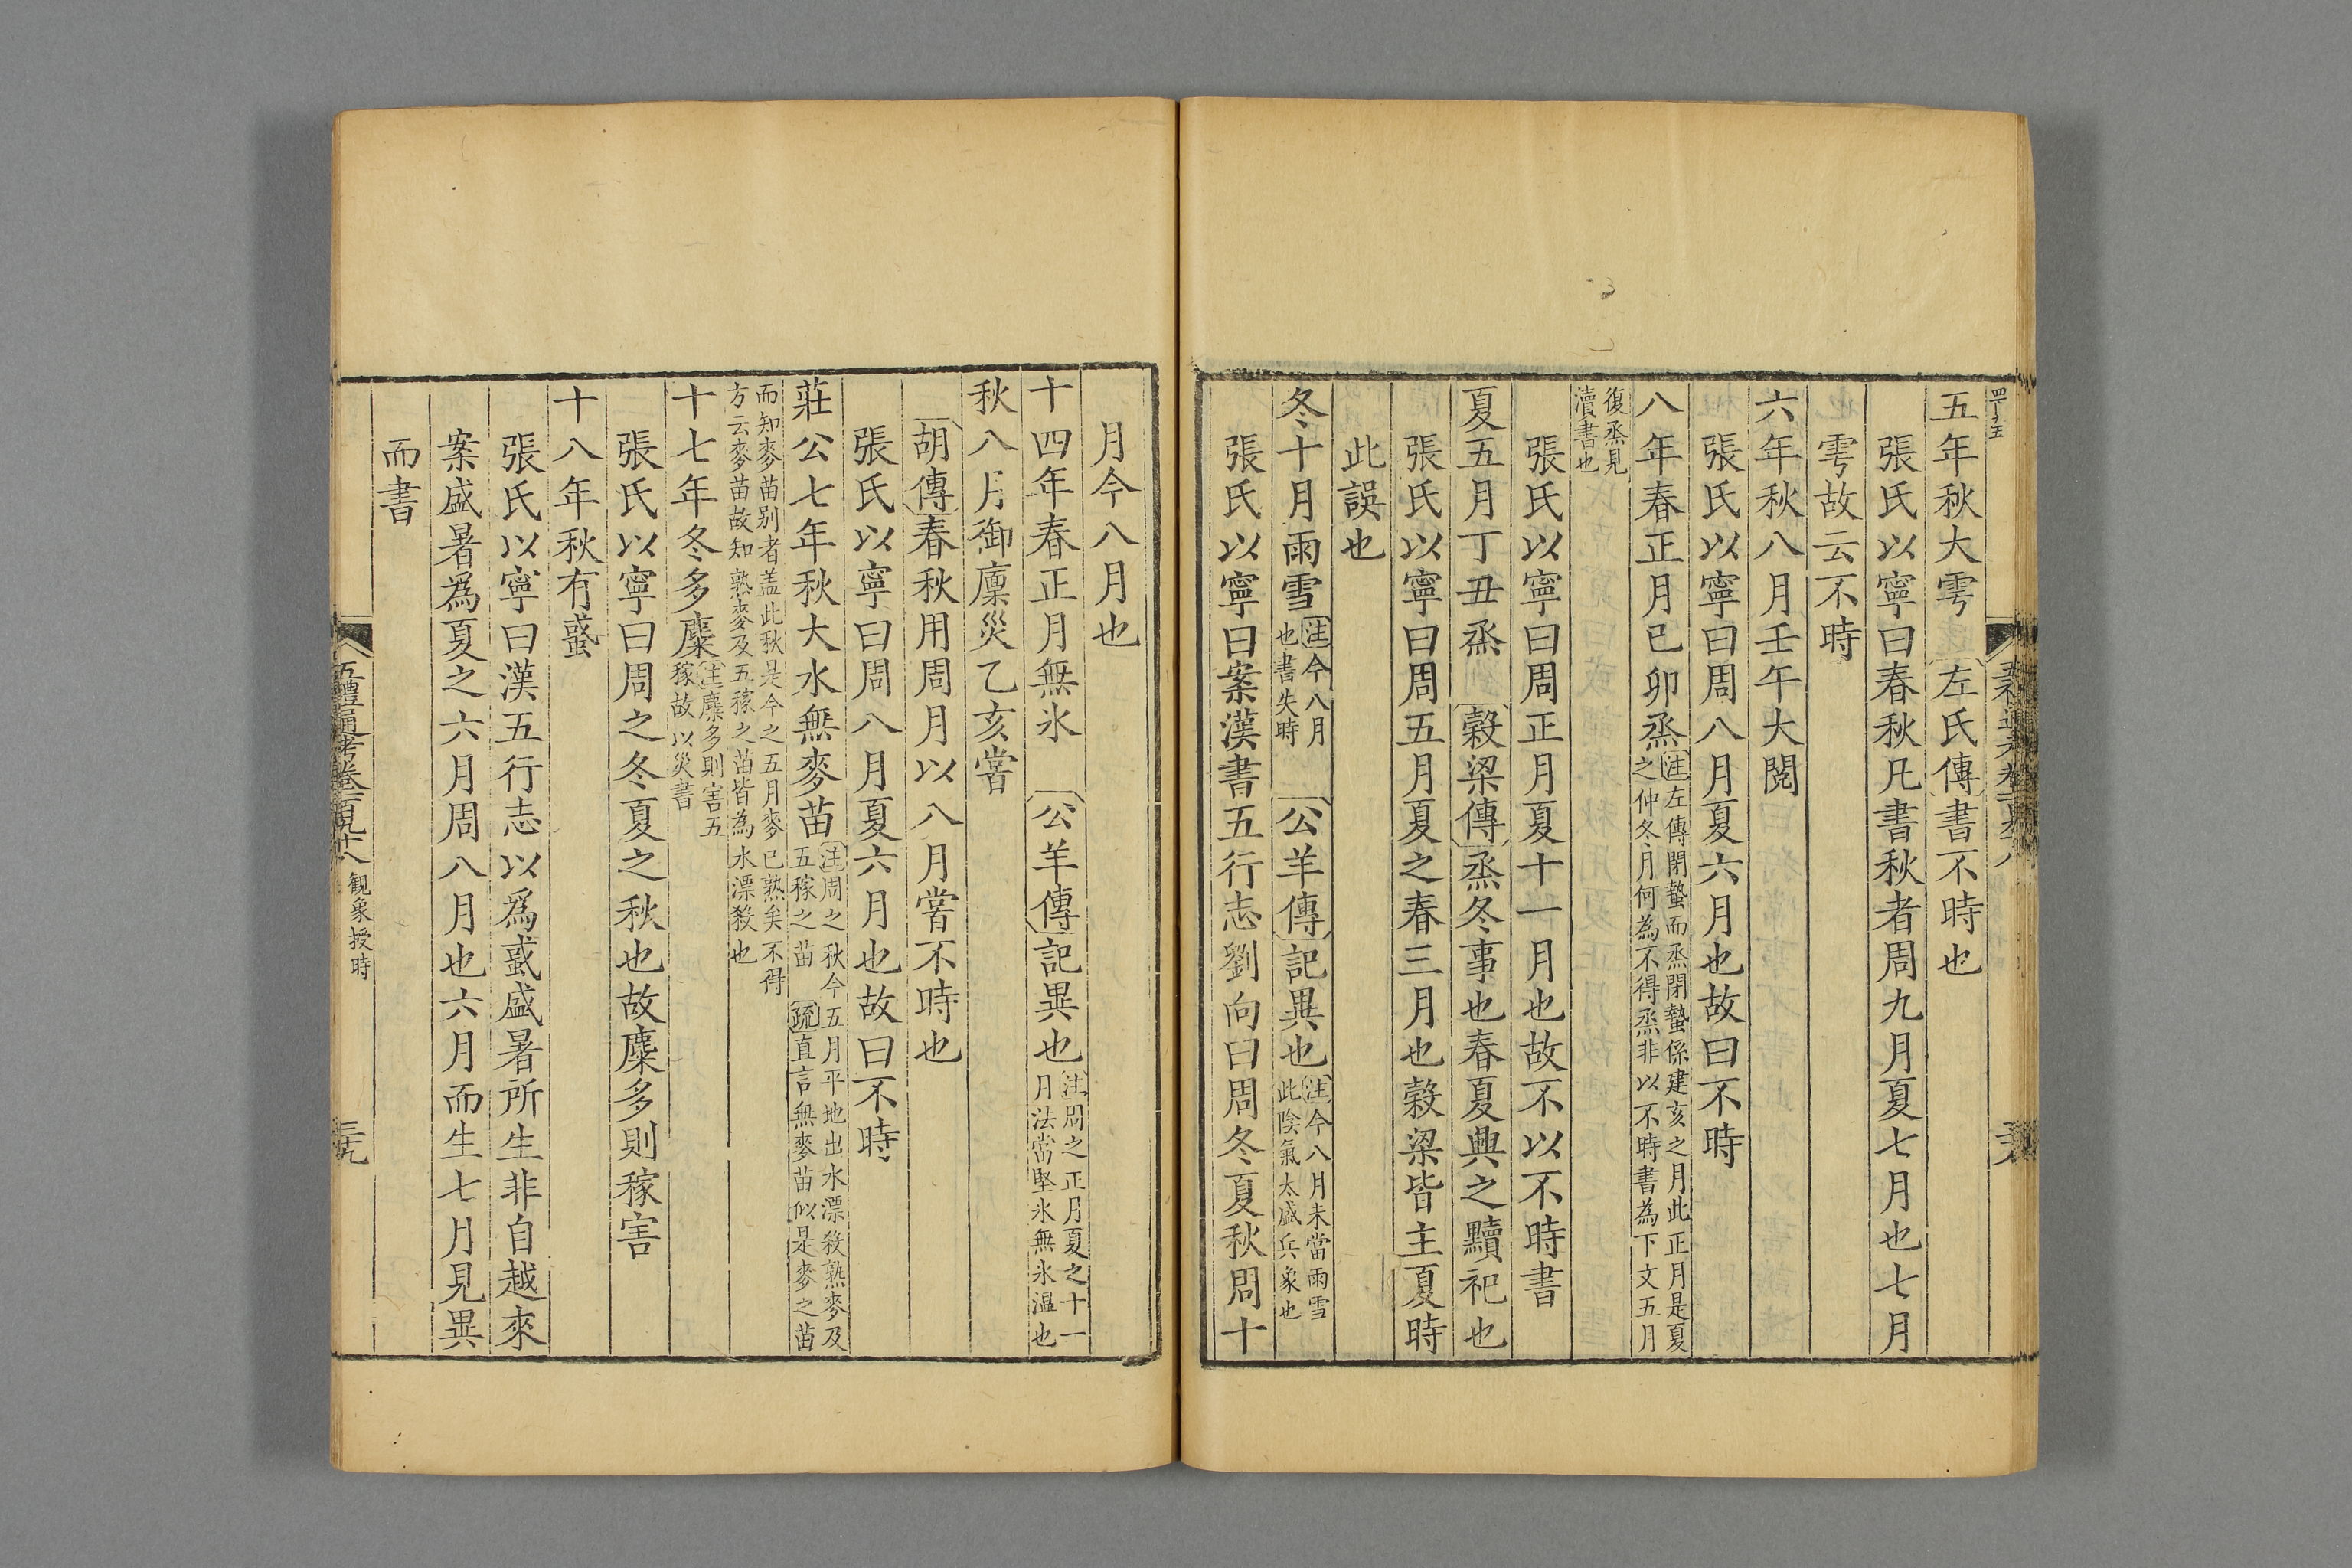 五年秋大雩　左氏傳書不時也
張氏以寧曰春秋凡書秋者周九月夏七月也七月
雩故云不時
六年秋八月壬午大閱
張氏以寧曰周八月夏六月也故曰不時
八年春正月己卯烝注左傳閉蟄而烝閉蟄係建亥之月此正月是夏
之仲冬月何為不得烝非以不時書為下文五月
復烝見
瀆書也
張氏以寧曰周正月夏十一月也故不以不時書
夏五月丁丑烝　穀梁傳烝冬事也春夏興之黷祀也
張氏以寧曰周五月夏之春三月也穀梁皆主夏時
此誤也
冬十月雨雪注今八月
也書失時　公羊傳記異也注今八月未當雨雪
此陰氣太盛兵象也
張氏以寧曰案漢書五行志劉向曰周冬夏秋周十
月今八月也
十四年春正月無氷　公羊傳記異也注周之正月夏之十一
月法當堅氷無氷温也
秋八月御廩災乙亥嘗
胡傳春秋用周月以八月嘗不時也
張氏以寧曰周八月夏六月也故曰不時
莊公七年秋大水無麥苗注周之秋今五月平地出水漂殺熟麥及
五稼之苗　疏直言無麥苗似是麥之苗
而知麥苗别者盖此秋是今之五月麥已熟矣不得
方云麥苗故知熟麥及五稼之苗皆為水漂殺也
十七年冬多麋注麋多則害五
稼故以災書
張氏以寧曰周之冬夏之秋也故麋多則稼害
十八年秋有蜮
張氏以寧曰漢五行志以為蜮盛暑所生非自越來
案盛暑為夏之六月周八月也六月而生七月見異
而書
五禮通考卷一百九十八　觀象授時
三九